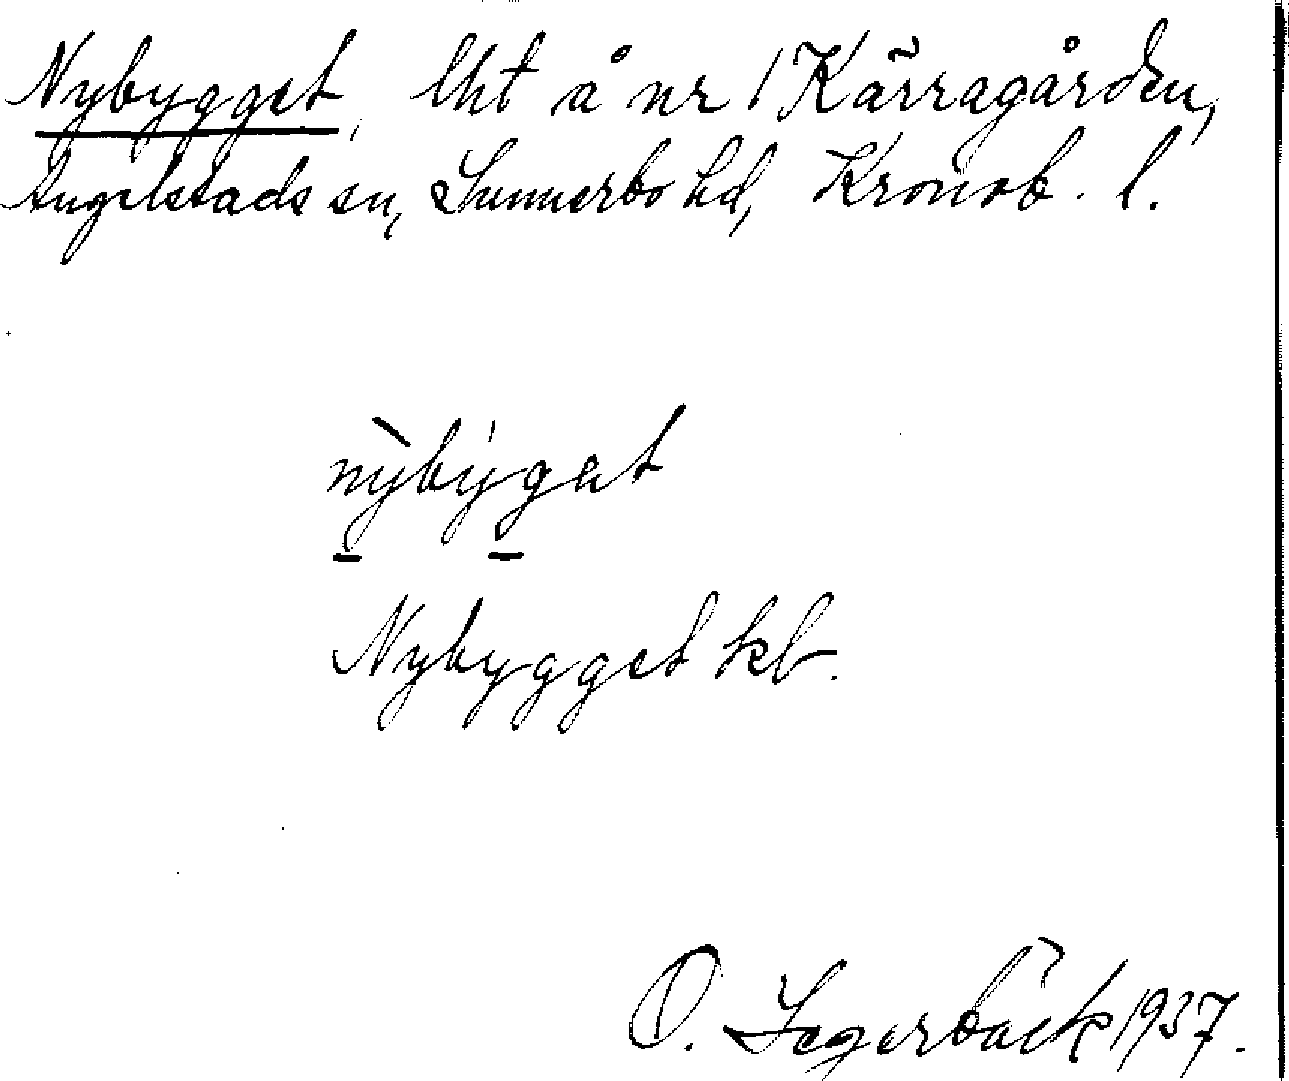 Nybygget, lht å nr 1 Kärragården,
Angelstads sn, Sunnerbo hd, Kronob. l.
nỳbýgat
Nybygget kb.
O. Segerbäck 1937.